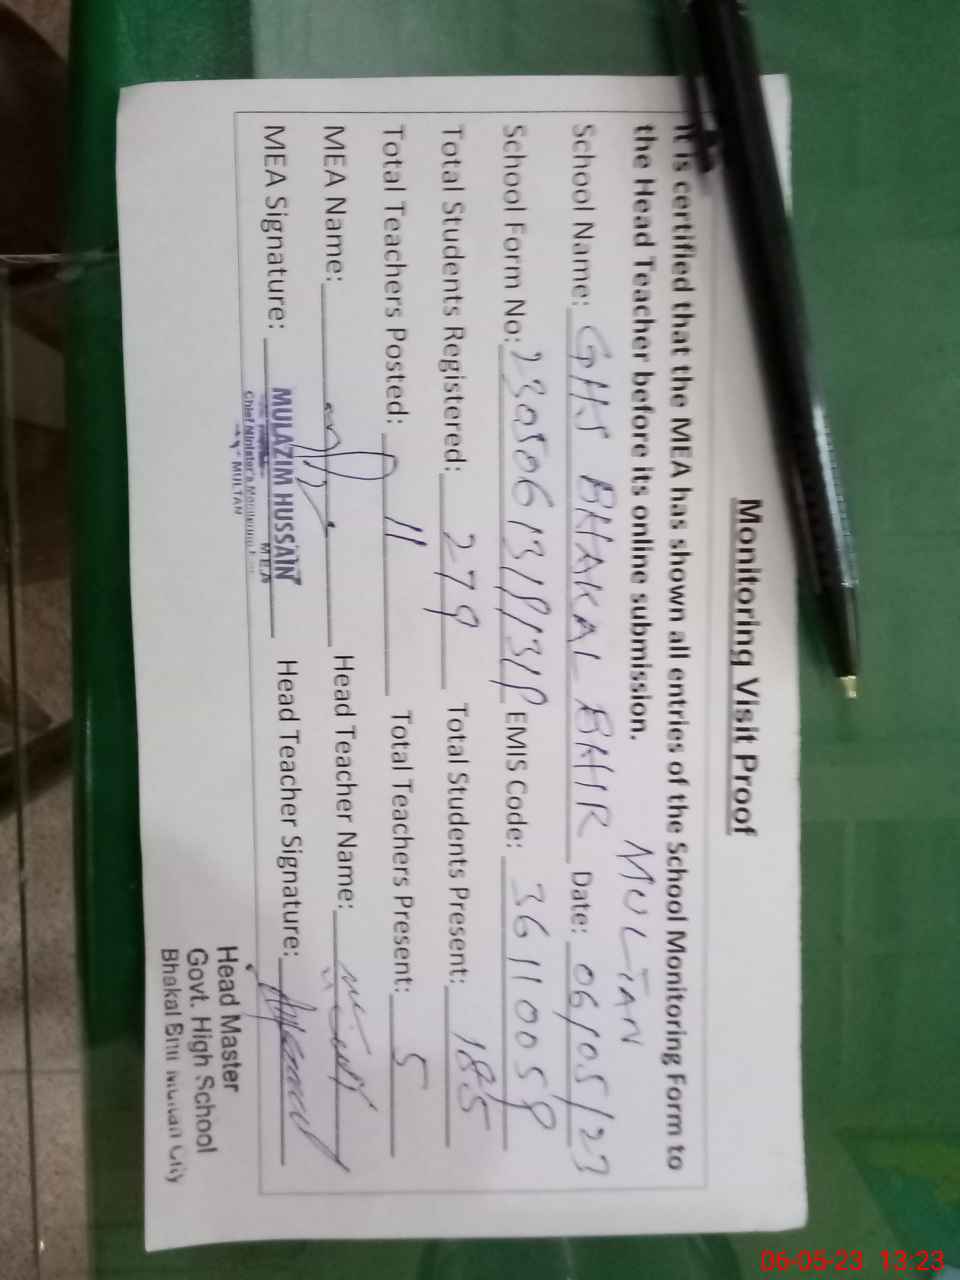 Monitoring Visit Proof
It is certified that the MEA has shown all entries of the School Monitoring Form to
the Head Teacher before its online submission.
MULTAN
School Name: GHS BHAKAL BHIR Date: 06/05/23
School Form No: EMIS Code: 36110059
Total Students Registered: 279 Total Students Present: 185
Total Teachers Posted: 11 Total Teachers Present: 5
MEA Name: Head Teacher Name:
MEA Signature: Head Teacher Signature:
MULAZIM HUSSAIN
MEA
Chief Minister's Monitoring
MULTAN
Head Master
Govt. High School
Bhakal Bhir Multan City
06-05-23 13:23